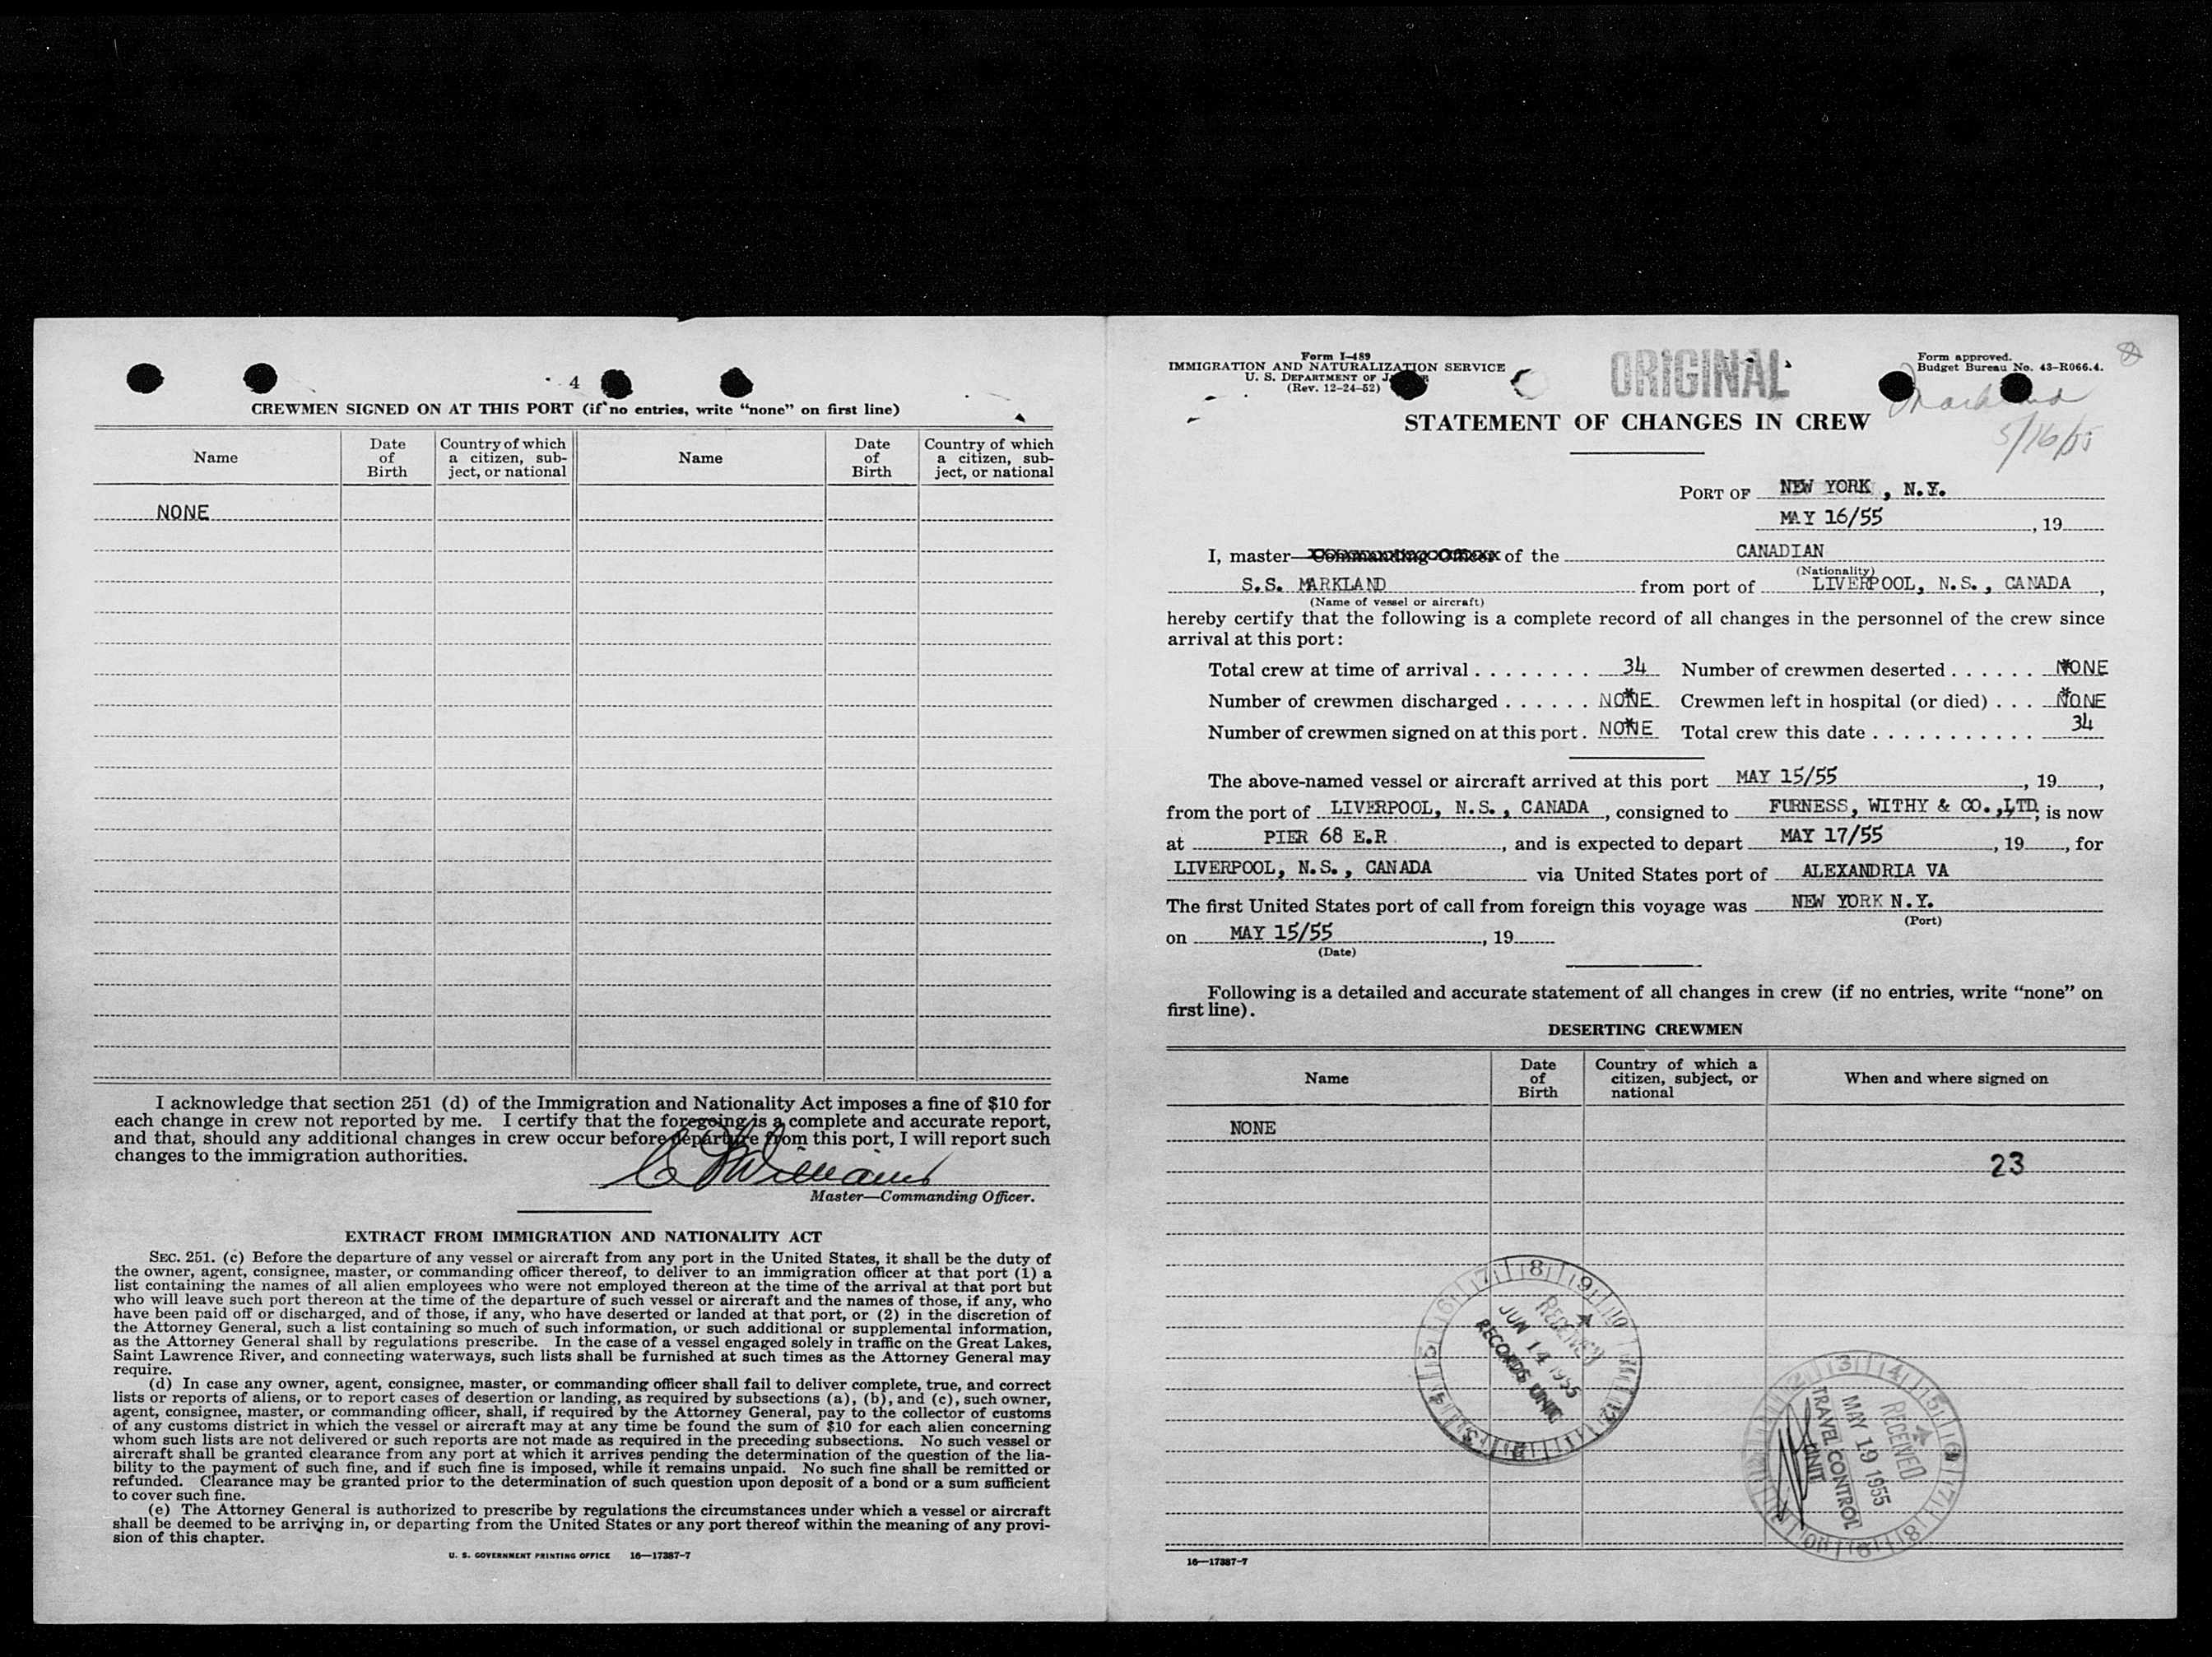 4
CREWMEN SIGNED ON AT THIS PORT (if no entries, write “none” on first line)
Name
Date of Birth
Country of which a citizen, subject, or national
Name
Date of Birth
Country of which a citizen, subject, or national
NONE
I acknowledge that section 251 (d) of the Immigration and Nationality Act imposes a fine of $10 for
each change in crew not reported by me. I certify that the foregoing is a complete and accurate report,
and that, should any additional changes in crew occur before departure from this port, I will report such
changes to the immigration authorities.
Master—Commanding Officer.
EXTRACT FROM IMMIGRATION AND NATIONALITY ACT
SEC. 251. (c) Before the departure of any vessel or aircraft from any port in the United States, it shall be the duty of
the owner, agent, consignee, master, or commanding officer thereof, to deliver to an immigration officer at that port (1) a
list containing the names of all alien employees who were not employed thereon at the time of the arrival at that port but
who will leave such port thereon at the time of the departure of such vessel or aircraft and the names of those, if any, who
have been paid off or discharged, and of those, if any, who have deserted or landed at that port, or (2) in the discretion of
the Attorney General, such a list containing so much of such information, or such additional or supplemental information,
as the Attorney General shall by regulations prescribe. In the case of a vessel engaged solely in traffic on the Great Lakes,
Saint Lawrence River, and connecting waterways, such lists shall be furnished at such times as the Attorney General may
require.
(d) In case any owner, agent, consignee, master, or commanding officer shall fail to deliver complete, true, and correct
lists or reports of aliens, or to report cases of desertion or landing, as required by subsections (a), (b), and (c), such owner,
agent, consignee, master, or commanding officer, shall, if required by the Attorney General, pay to the collector of customs
of any customs district in which the vessel or aircraft may at any time be found the sum of $10 for each alien concerning
whom such lists are not delivered or such reports are not made as required in the preceding subsections. No such vessel or
aircraft shall be granted clearance from any port at which it arrives pending the determination of the question of the lia-
bility to the payment of such fine, and if such fine is imposed, while it remains unpaid. No such fine shall be remitted or
refunded. Clearance may be granted prior to the determination of such question upon deposit of a bond or a sum sufficient
to cover such fine.
(e) The Attorney General is authorized to prescribe by regulations the circumstances under which a vessel or aircraft
shall be deemed to be arriving in, or departing from the United States or any port thereof within the meaning of any provi-
sion of this chapter.
U. S. GOVERNMENT PRINTING OFFICE 16—17387-7
Form I-489
IMMIGRATION AND NATURALIZATION SERVICE
U. S. DEPARTMENT OF
(Rev. 12-24-52)
ORIGINAL
Form approved.
Budget Bureau No. 43-R066.4.
Markland
5/16/55
STATEMENT OF CHANGES IN CREW
PORT OF NEW YORK, N.Y.
MAY 16/55, 19
I, master—Commanding Officer of the CANADIAN
(Nationality)
S.S. MARKLAND from port of LIVERPOOL, N.S., CANADA,
(Name of vessel or aircraft)
hereby certify that the following is a complete record of all changes in the personnel of the crew since
arrival at this port:
Total crew at time of arrival 34 Number of crewmen deserted NONE
Number of crewmen discharged NONE Crewmen left in hospital (or died) NONE
Number of crewmen signed on at this port. NONE Total crew this date 34
The above-named vessel or aircraft arrived at this port MAY 15/55, 19,
from the port of LIVERPOOL, N.S., CANADA, consigned to FURNESS, WITHY & CO.,LTD, is now
at PIER 68 E.R., and is expected to depart MAY 17/55, 19, for
LIVERPOOL, N.S., CANADA via United States port of ALEXANDRIA VA
The first United States port of call from foreign this voyage was NEW YORK N.Y.
(Port)
on MAY 15/55, 19
(Date)
Following is a detailed and accurate statement of all changes in crew (if no entries, write “none” on
first line).
DESERTING CREWMEN
Name
Date of Birth
Country of which a citizen, subject, or national
When and where signed on
NONE
23
RECEIVED
JUN 14 1955
RECORDS UNIT
RECEIVED
MAY 19 1955
TRAVEL CONTROL
UNIT
16—17387-7